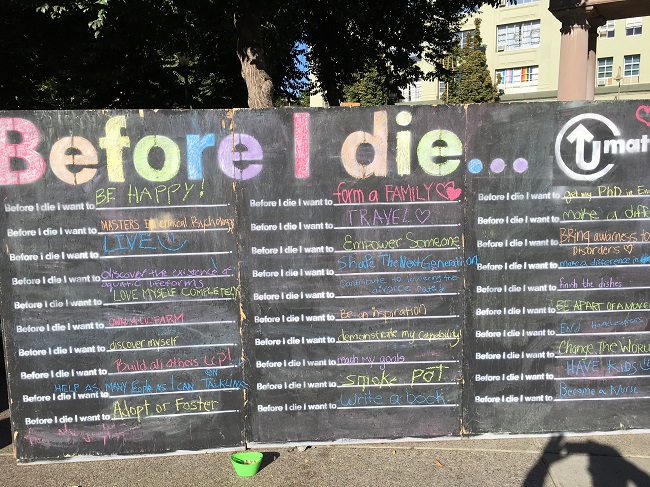 Before I die...
U mat
Before I die I want to BE HAPPY!
Before I die I want to MASTERS Psychology
Before I die I want to LIVE
Before I die I want to discover the existence of
aquatic lifeforms
Before I die I want to LOVE MYSELF COMPLETELY
Before I die I want to OWN A FARM
Before I die I want to discover myself
Before I die I want to Build all others UP!
Before I die I want to HELP AS MANY PEOPLE AS I CAN
Before I die I want to Adopt or Foster
Before I die I want to form a FAMILY
Before I die I want to TRAVEL
Before I die I want to Empower Someone
Before I die I want to Shape The Next Generation
Before I die I want to Contribute to lowering the
divorce rate
Before I die I want to Be an inspiration
Before I die I want to demonstrate my capability!
Before I die I want to reach my goals
Before I die I want to Smoke Pot
Before I die I want to write a book
Before I die I want to get my PhD in En
Before I die I want to make a diff
Before I die I want to BRING to
DISORDERS
Before I die I want to make a difference in
Before I die I want to finish the dishes
Before I die I want to BE APART OF A MOVE
Before I die I want to End
Before I die I want to Change The WORL
Before I die I want to HAVE KIDS
Before I die I want to Become a Nurse